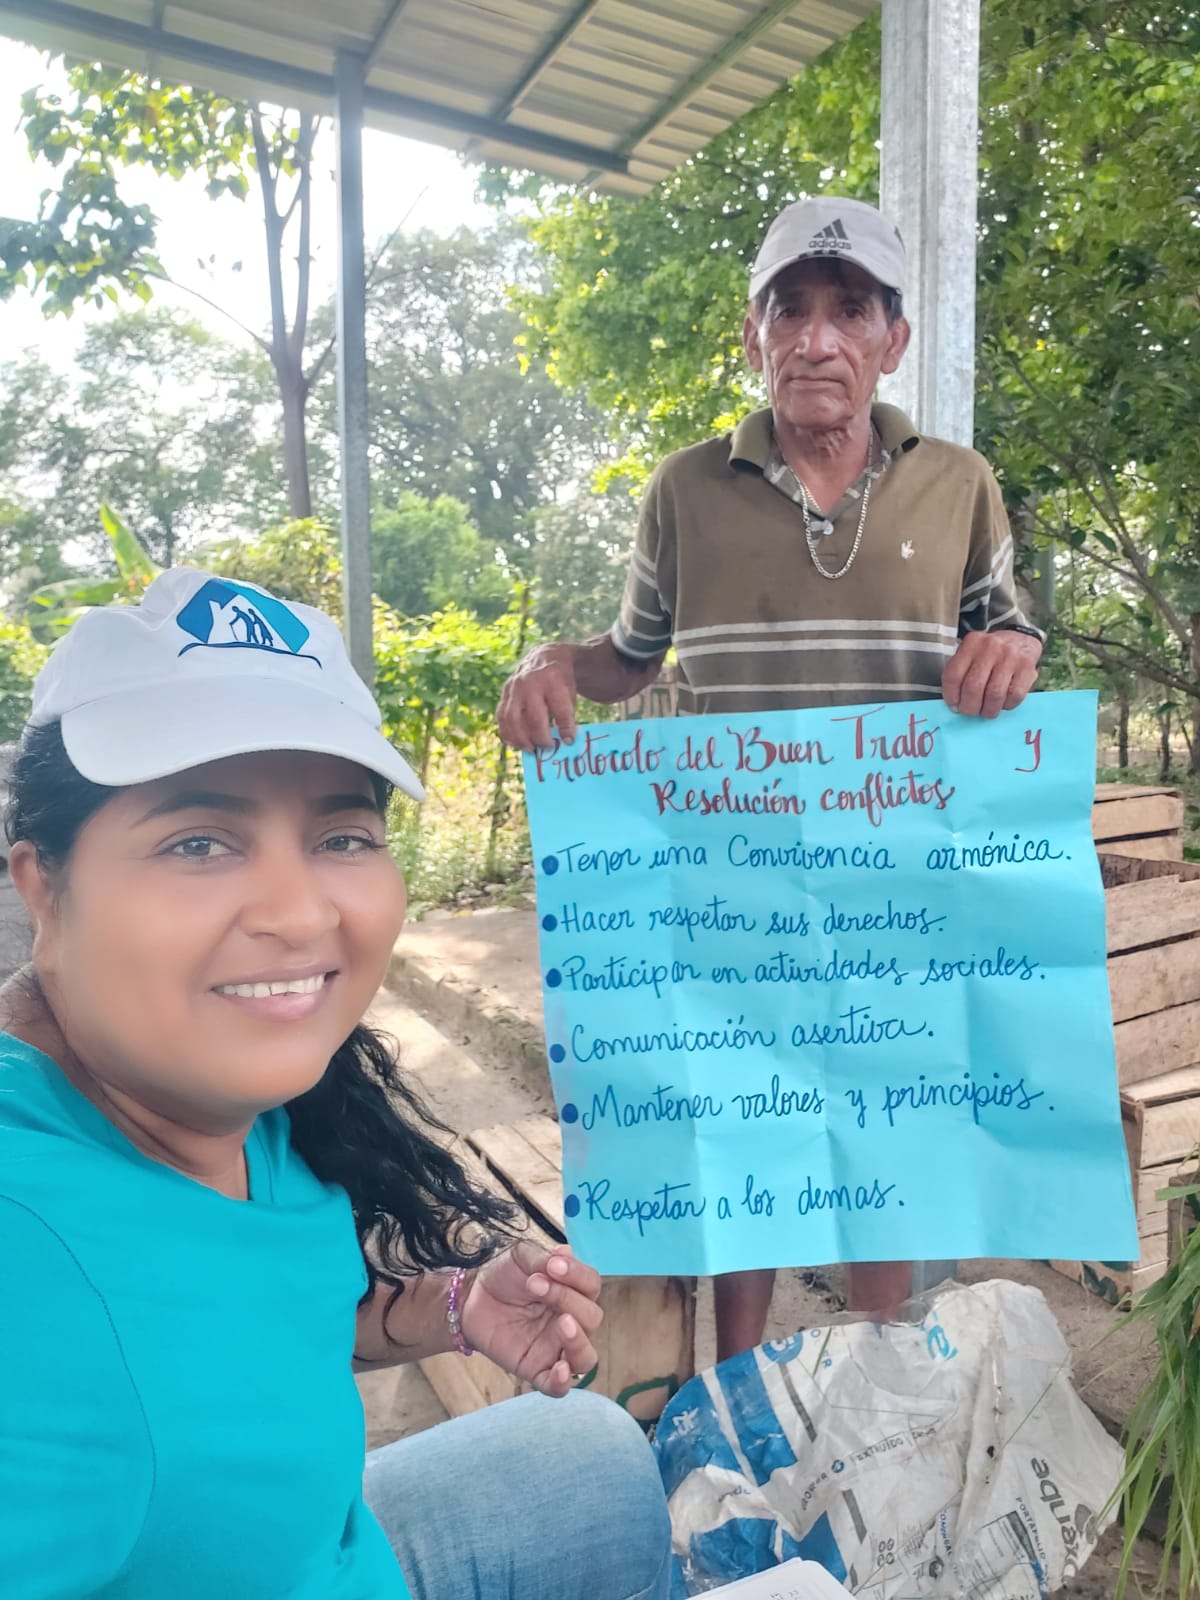 adidas
Protocolo del Buen Trato y
Resolución conflictos
• Tener una Convivencia armónica.
• Hacer respetar sus derechos.
• Participar en actividades sociales.
• Comunicación asertiva.
• Mantener valores y principios.
• Respetar a los demas.
EXTRUIDO
aquaxcel